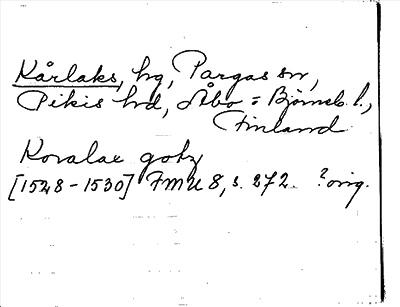 Kårlaks, hg, Pargas sn,
Pikis hd, Åbo = Björneb. l.,
Finland
Koralax gotz
[1528-1530] FMU 8, s. 272. ? orig.